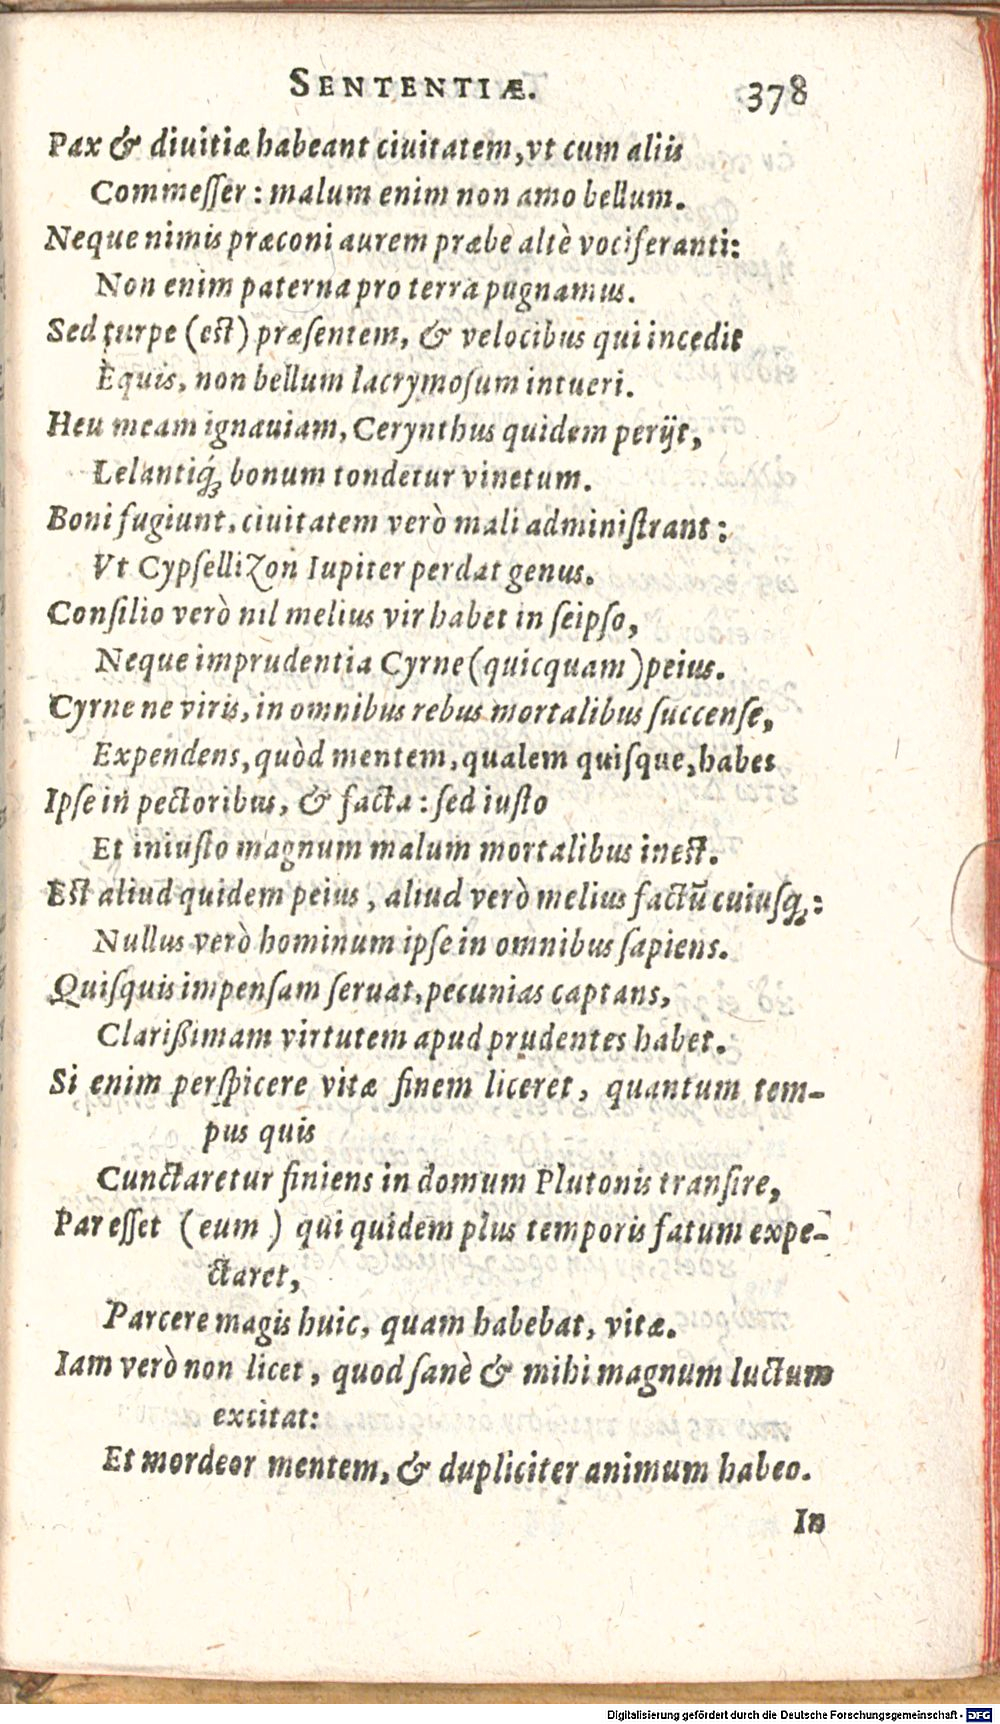 SENTENTIÆ. 378
Pax & diuitiæ habeant ciuitatem, vt cum aliis
Commeſſer : malum enim non amo bellum.
Neque nimis præconi aurem præbe altè vociferanti:
Non enim paterna pro terra pugnamus.
Sed turpe (est) præſentem, & velocibus qui incedit
Equis, non bellum lacrymoſum intueri.
Heu meam ignauiam, Cerynthus quidem perijt,
Lelantiq́; bonum tondetur vinetum.
Boni fugiunt, ciuitatem verò mali adminiſtrant :
Vt Cypſellizon Iupiter perdat genus.
Conſilio verò nil melius vir habet in ſeipſo,
Neque imprudentia Cyrne (quicquam) peius.
Cyrne ne viris, in omnibus rebus mortalibus ſuccenſe,
Expendens, quòd mentem, qualem quiſque, habes
Ipſe in pectoribus, & facta : ſed iuſto
Et iniuſto magnum malum mortalibus ineſt.
Eſt aliud quidem peius, aliud verò melius factū cuiuſq; :
Nullus verò hominum ipſe in omnibus ſapiens.
Quiſquis impenſam ſeruat, pecunias captans,
Clariſsimam virtutem apud prudentes habet.
Si enim perſpicere vitæ finem liceret, quantum tem-
pus quis
Cunctaretur finiens in domum Plutonis tranſire,
Par eſſet (eum) qui quidem plus temporis fatum expe-
ctaret,
Parcere magis huic, quam habebat, vitæ.
Iam verò non licet, quod ſanè & mihi magnum luctum
excitat:
Et mordeor mentem, & dupliciter animum habeo.
In
Digitalisierung gefördert durch die Deutsche Forschungsgemeinschaft - DFG